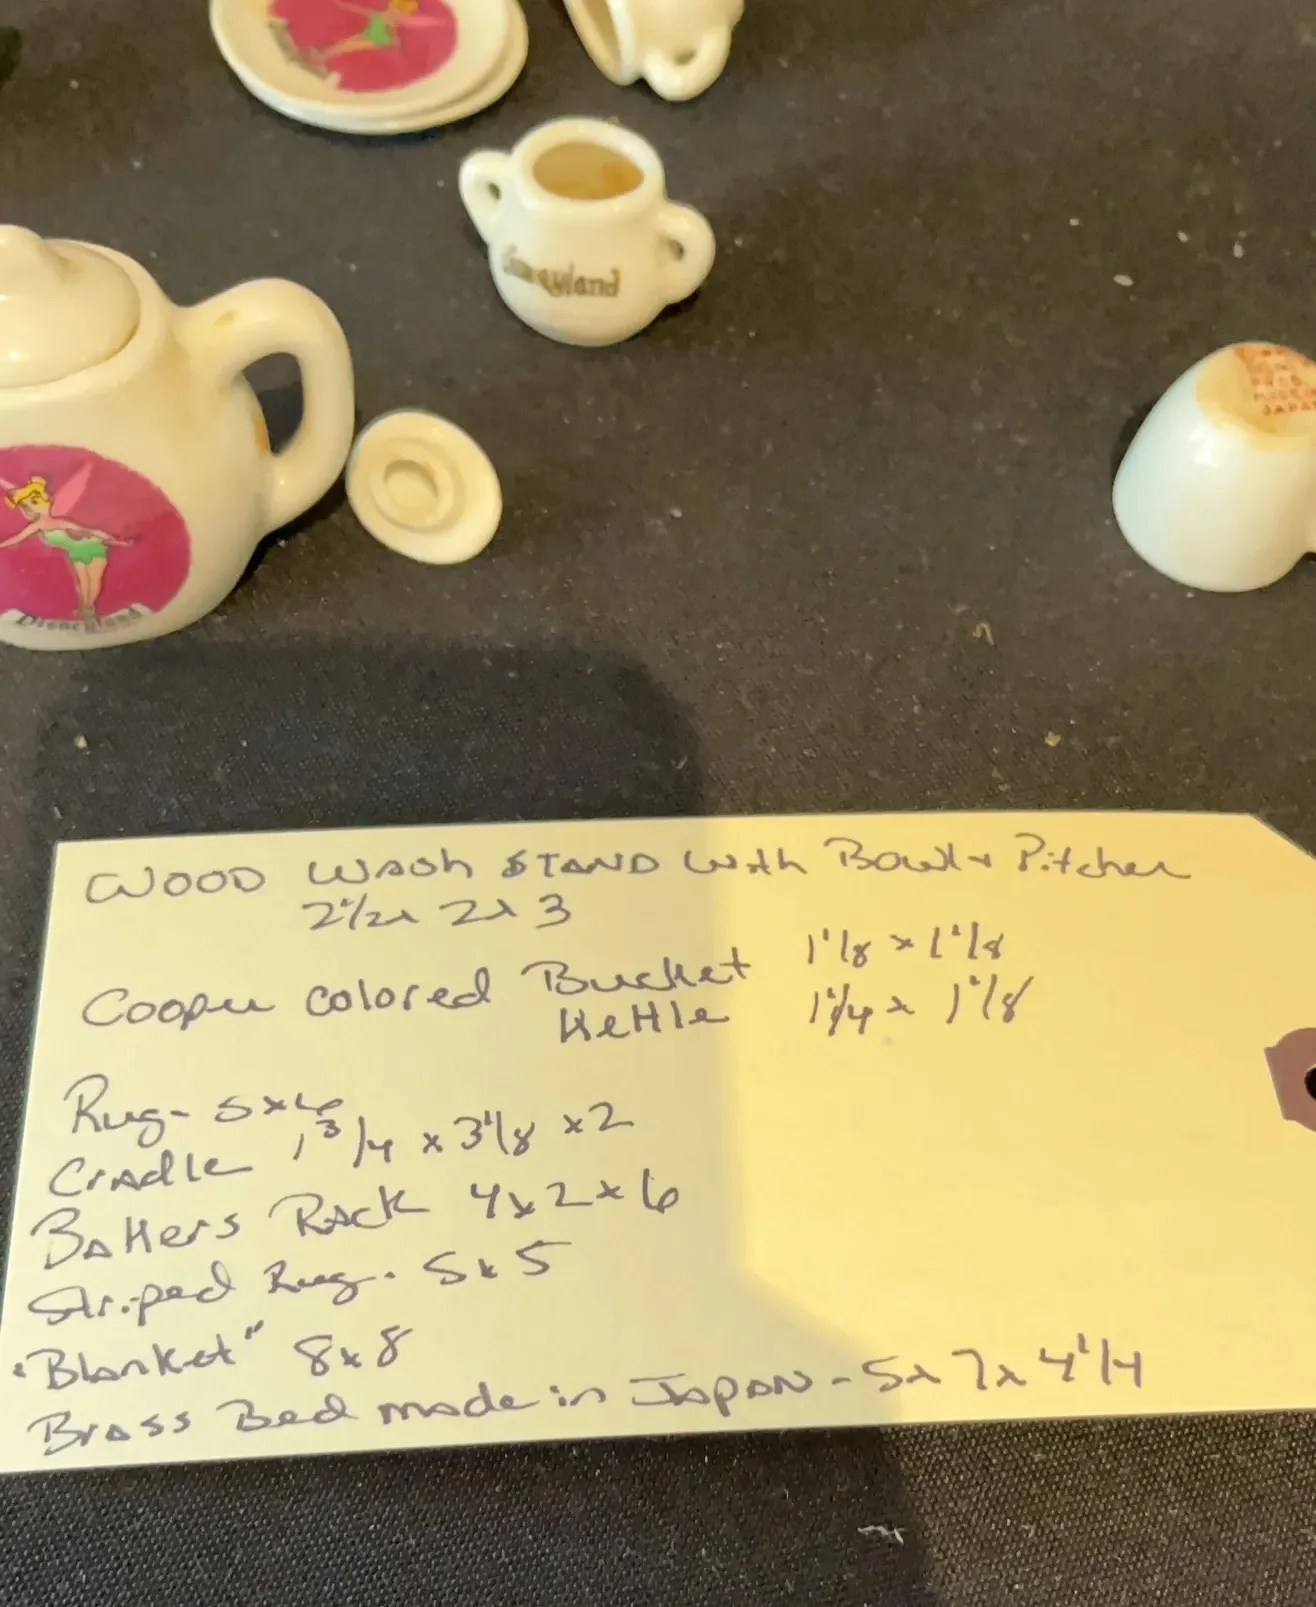 Disneyland
Disneyland
JAPAN
WOOD WASh STAND With Bowl + Pitcher
2 1/2 x 2 x 3
Cooper colored Bucket 1 1/8 x 1 1/8
Kettle 1 1/4 x 1 1/8
Rug - 5 x 6
Cradle 1 3/4 x 3 1/8 x 2
Bakers Rack 4 x 2 x 6
Striped Rug - 5 x 5
"Blanket" 8 x 8
Brass Bed made in JAPAN - 5 x 7 x 4 1/4